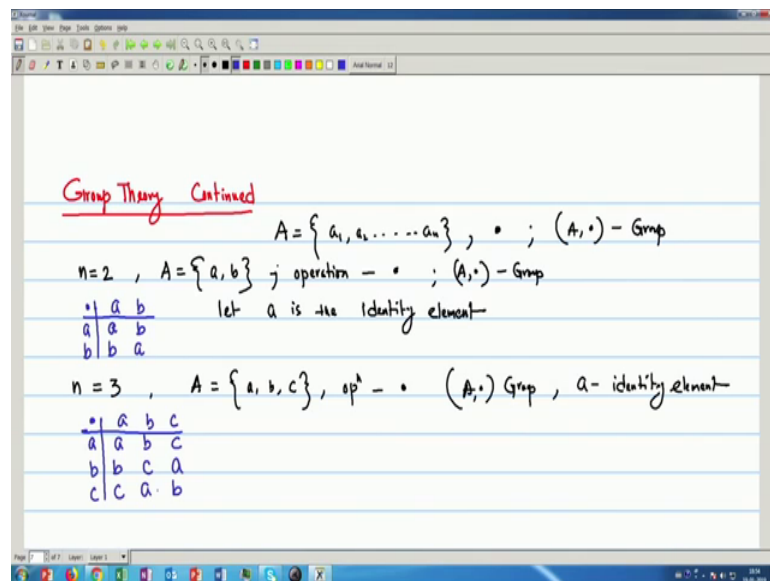 Journal
File Edit View Page Tools Options Help
Arial Normal 12
Group Theory Continued
A = { a₁, a₂ ...... aₙ } , • ; (A, •) - Group
n = 2 , A = { a, b } ; operation - • ; (A, •) - Group
• | a b let a is the Identity element
a | a b
b | b a
n = 3 , A = { a, b, c } , opⁿ - • (A, •) Group , a - identity element
• | a b c
a | a b c
b | b c a
c | c a b
Page 7 of 7 Layer: Layer 1